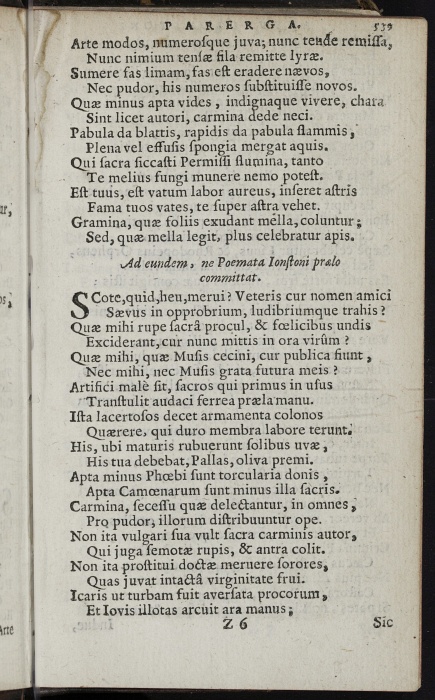 PARERGA. 539
Arte modos, numerosque juva; nunc tende remissa,
Nunc nimium tensæ fila remitte lyræ.
Sumere fas limam, fas est eradere nævos,
Nec pudor, his numeros substituisse novos.
Quæ minus apta vides, indignaque vivere, chara
Sint licet autori, carmina dede neci.
Pabula da blattis, rapidis da pabula flammis,
Plena vel effusis spongia mergat aquis.
Qui sacra siccasti Permissi flumina, tanto
Te melius fungi munere nemo potest.
Est tuus, est vatum labor aureus, inseret astris
Fama tuos vates, te super astra vehet.
Gramina, quæ foliis exudant mella, coluntur;
Sed, quæ mella legit, plus celebratur apis.
Ad eundem, ne Poemata Ionstoni prælo
committat.
SCote, quid, heu, merui? Veteris cur nomen amici
Sævus in opprobrium, ludibriumque trahis?
Quæ mihi rupe sacrâ procul, & fœlicibus undis
Exciderant, cur nunc mittis in ora virûm?
Quæ mihi, quæ Musis cecini, cur publica fiunt,
Nec mihi, nec Musis grata futura meis?
Artifici malè sit, sacros qui primus in usus
Transtulit audaci ferrea præla manu.
Ista lacertosos decet armamenta colonos
Quærere, qui duro membra labore terunt.
His, ubi maturis rubuerunt solibus uvæ,
His tua debebat, Pallas, oliva premi.
Apta minus Phœbi sunt torcularia donis,
Apta Camœnarum sunt minus illa sacris.
Carmina, secessu quæ delectantur, in omnes,
Pro pudor, illorum distribuuntur ope.
Non ita vulgari sua vult sacra carminis autor,
Qui juga semotæ rupis, & antra colit.
Non ita prostitui doctæ meruere sorores,
Quas juvat intactâ virginitate frui.
Icaris ut turbam fuit aversata procorum,
Et Iovis illotas arcuit ara manus;
Z 6 Sic